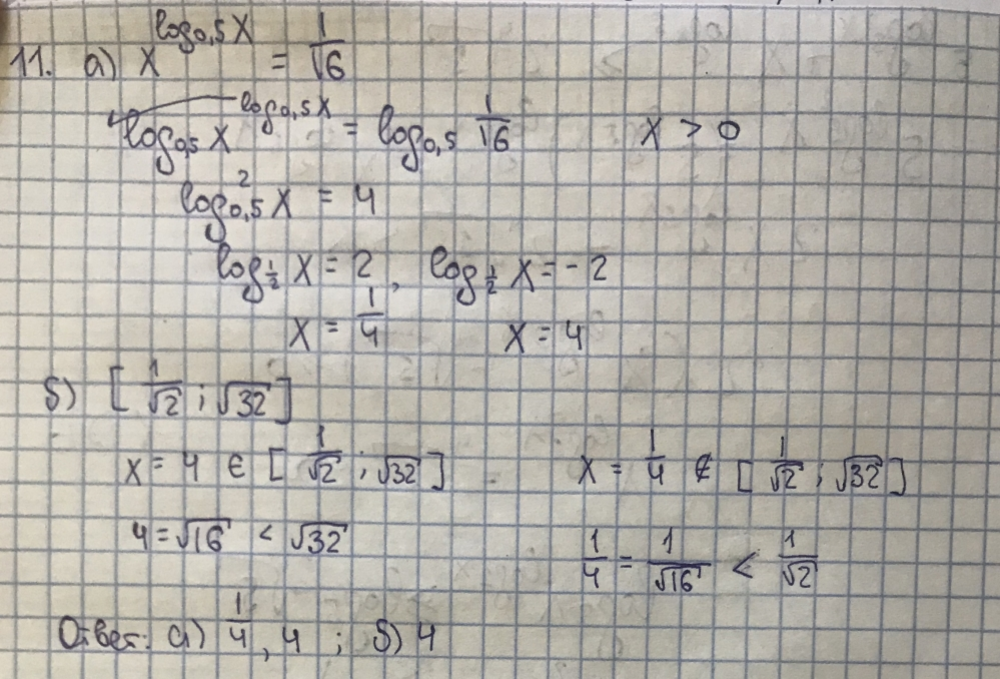 11. а) x^(log₀,₅x) = 1/16
log₀,₅ x^(log₀,₅x) = log₀,₅ 1/16    x > 0
log²₀,₅ x = 4
log_(1/2) x = 2, log_(1/2) x = -2
x = 1/4    x = 4
б) [1/√2 ; √32]
x = 4 ∈ [1/√2 ; √32]    x = 1/4 ∉ [1/√2 ; √32]
4 = √16 < √32    1/4 = 1/√16 < 1/√2
Ответ: а) 1/4, 4 ; б) 4